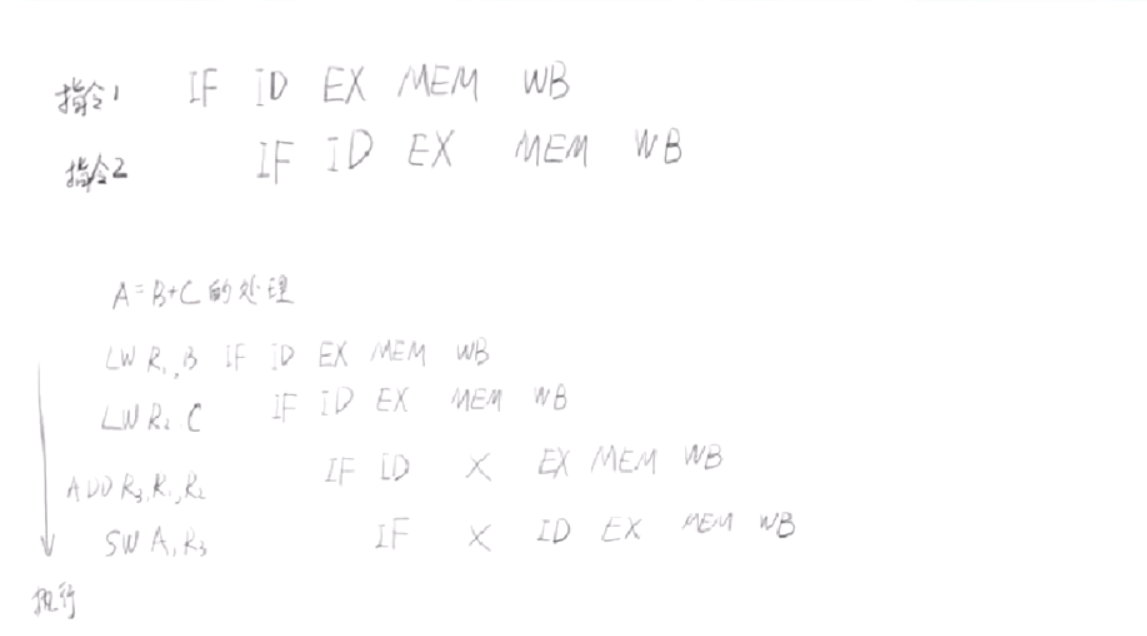 指令1 IF ID EX MEM WB
指令2 IF ID EX MEM WB
A=B+C的处理
LW R1,B IF ID EX MEM WB
LW R2 C IF ID EX MEM WB
ADD R3,R1,R2 IF ID X EX MEM WB
SW A,R3 IF X ID EX MEM WB
执行